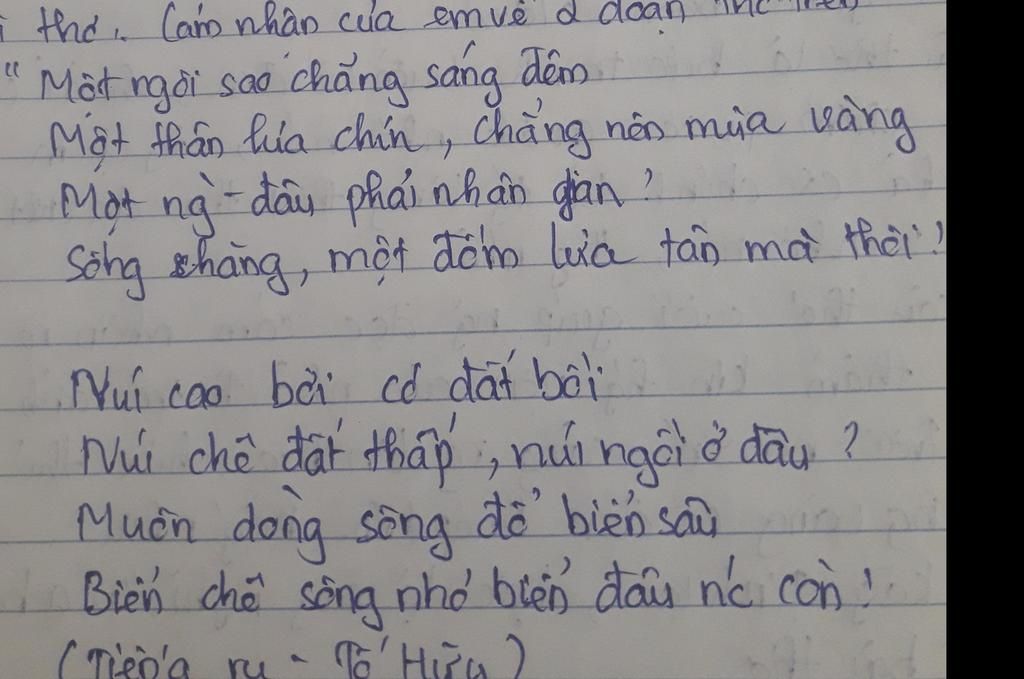 thơ. Cảm nhận của em về 2 đoạn thơ trên
"Một ngôi sao chẳng sáng đêm
Một thân lúa chín, chẳng nên mùa vàng
Một ng̀ - đâu phải nhân gian?
Sống chăng, một đốm lửa tàn mà thôi!
Núi cao bởi có đất bồi
Núi chê đất thấp, núi ngồi ở đâu?
Muôn dòng sông đổ biển sâu
Biển chê sông nhỏ biển đâu nc còn!
(Tiếng ru - Tố Hữu)